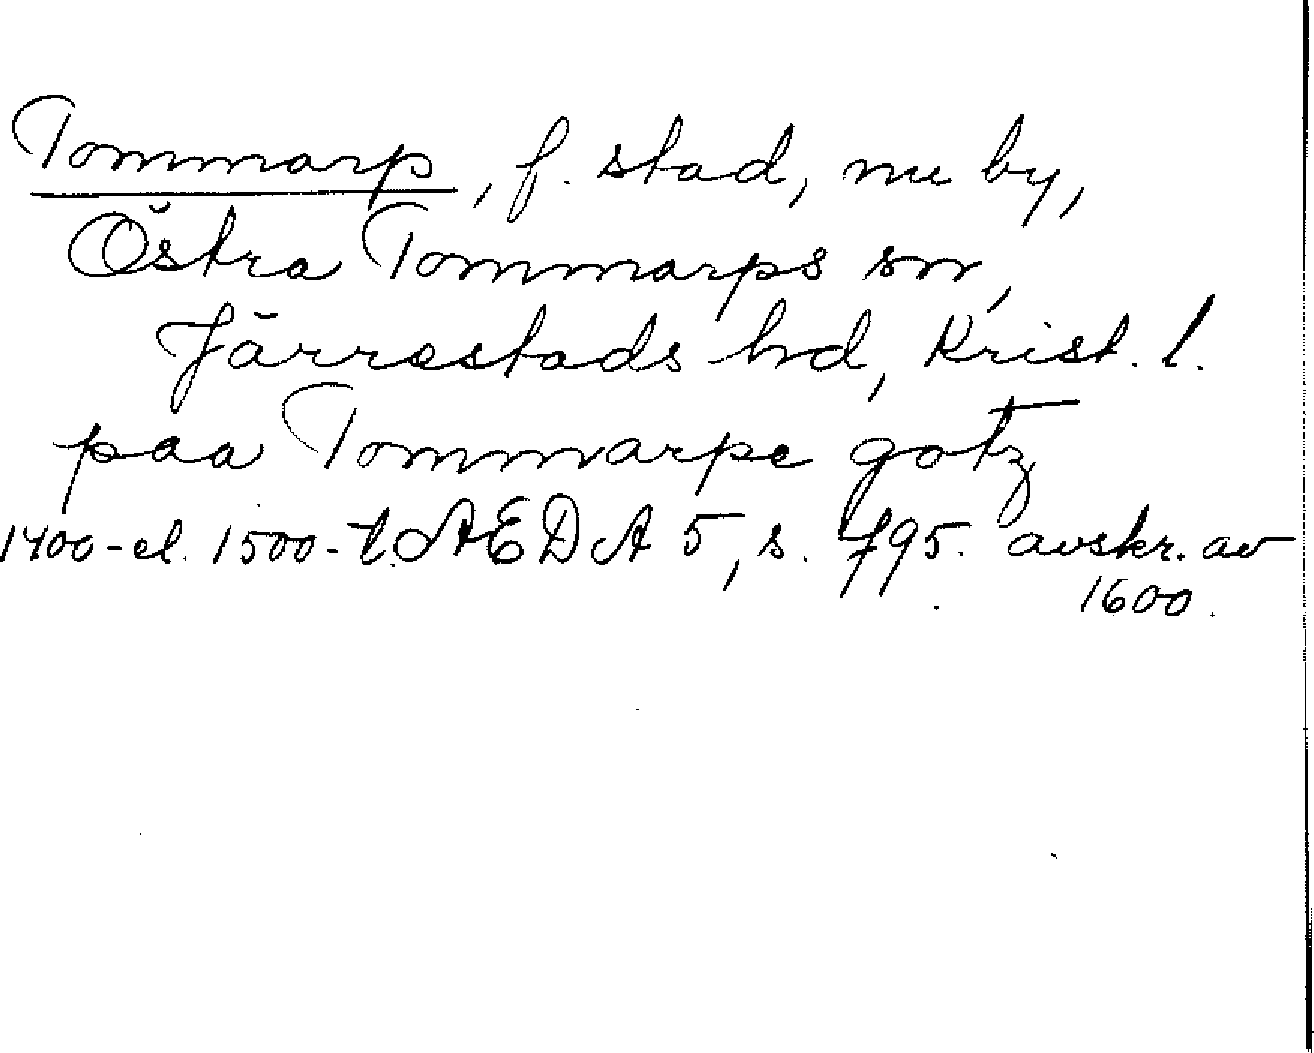 Tommarp, f. stad, nu by,
Östra Tommarps sn,
Järrestads hd, Krist. l.
paa Tommarpe gotz
1400-el. 1500-t. AEDA 5, s. 795. avskr. av
1600.